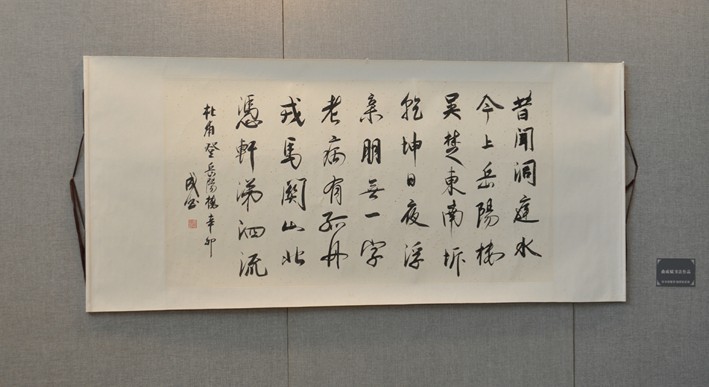 昔闻洞庭水
今上岳陽楼
吴楚東南坼
乾坤日夜浮
亲朋無一字
老病有孤舟
戎馬関山北
憑軒涕泗流
杜甫登岳陽楼 辛卯